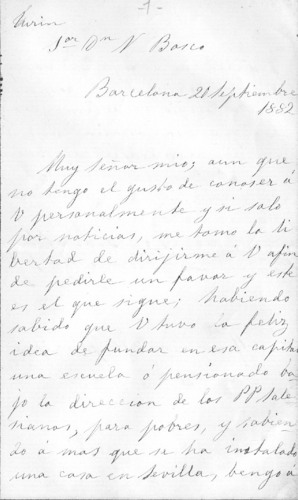 -1-
Turin
Sor Dn N Bosco
Barcelona 20 septiembre
1882
Muy señor mio; aun que
no tengo el gusto de conoser á
V personalmente y si solo
por noticias, me tomo la li
bertad de dirijirme á V afin
de pedirle un favor y este
es el que sigue; habiendo
sabido que V tuvo la feliz
idea de fundar en esa capital
una escuela ó pensionado ba
jo la direccion de los PP Sale
sianos, para pobres, y sabien
do á mas que se ha instalado
una casa en Sevilla, bengo á